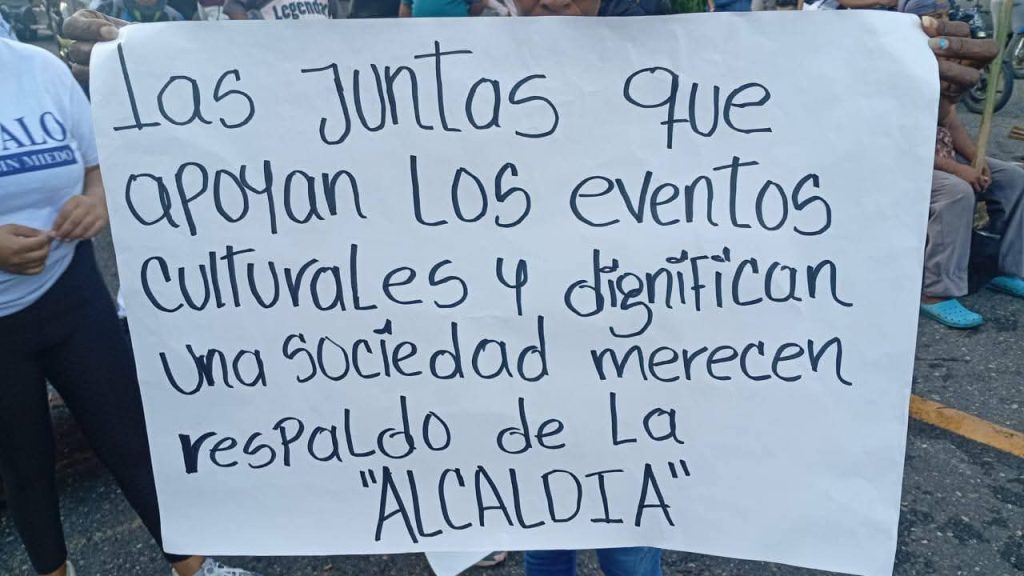 Legends
ALO
IN MIEDO
las juntas que
apoyan los eventos
culturales y dignifican
una sociedad merecen
respaldo de la
"ALCALDIA"